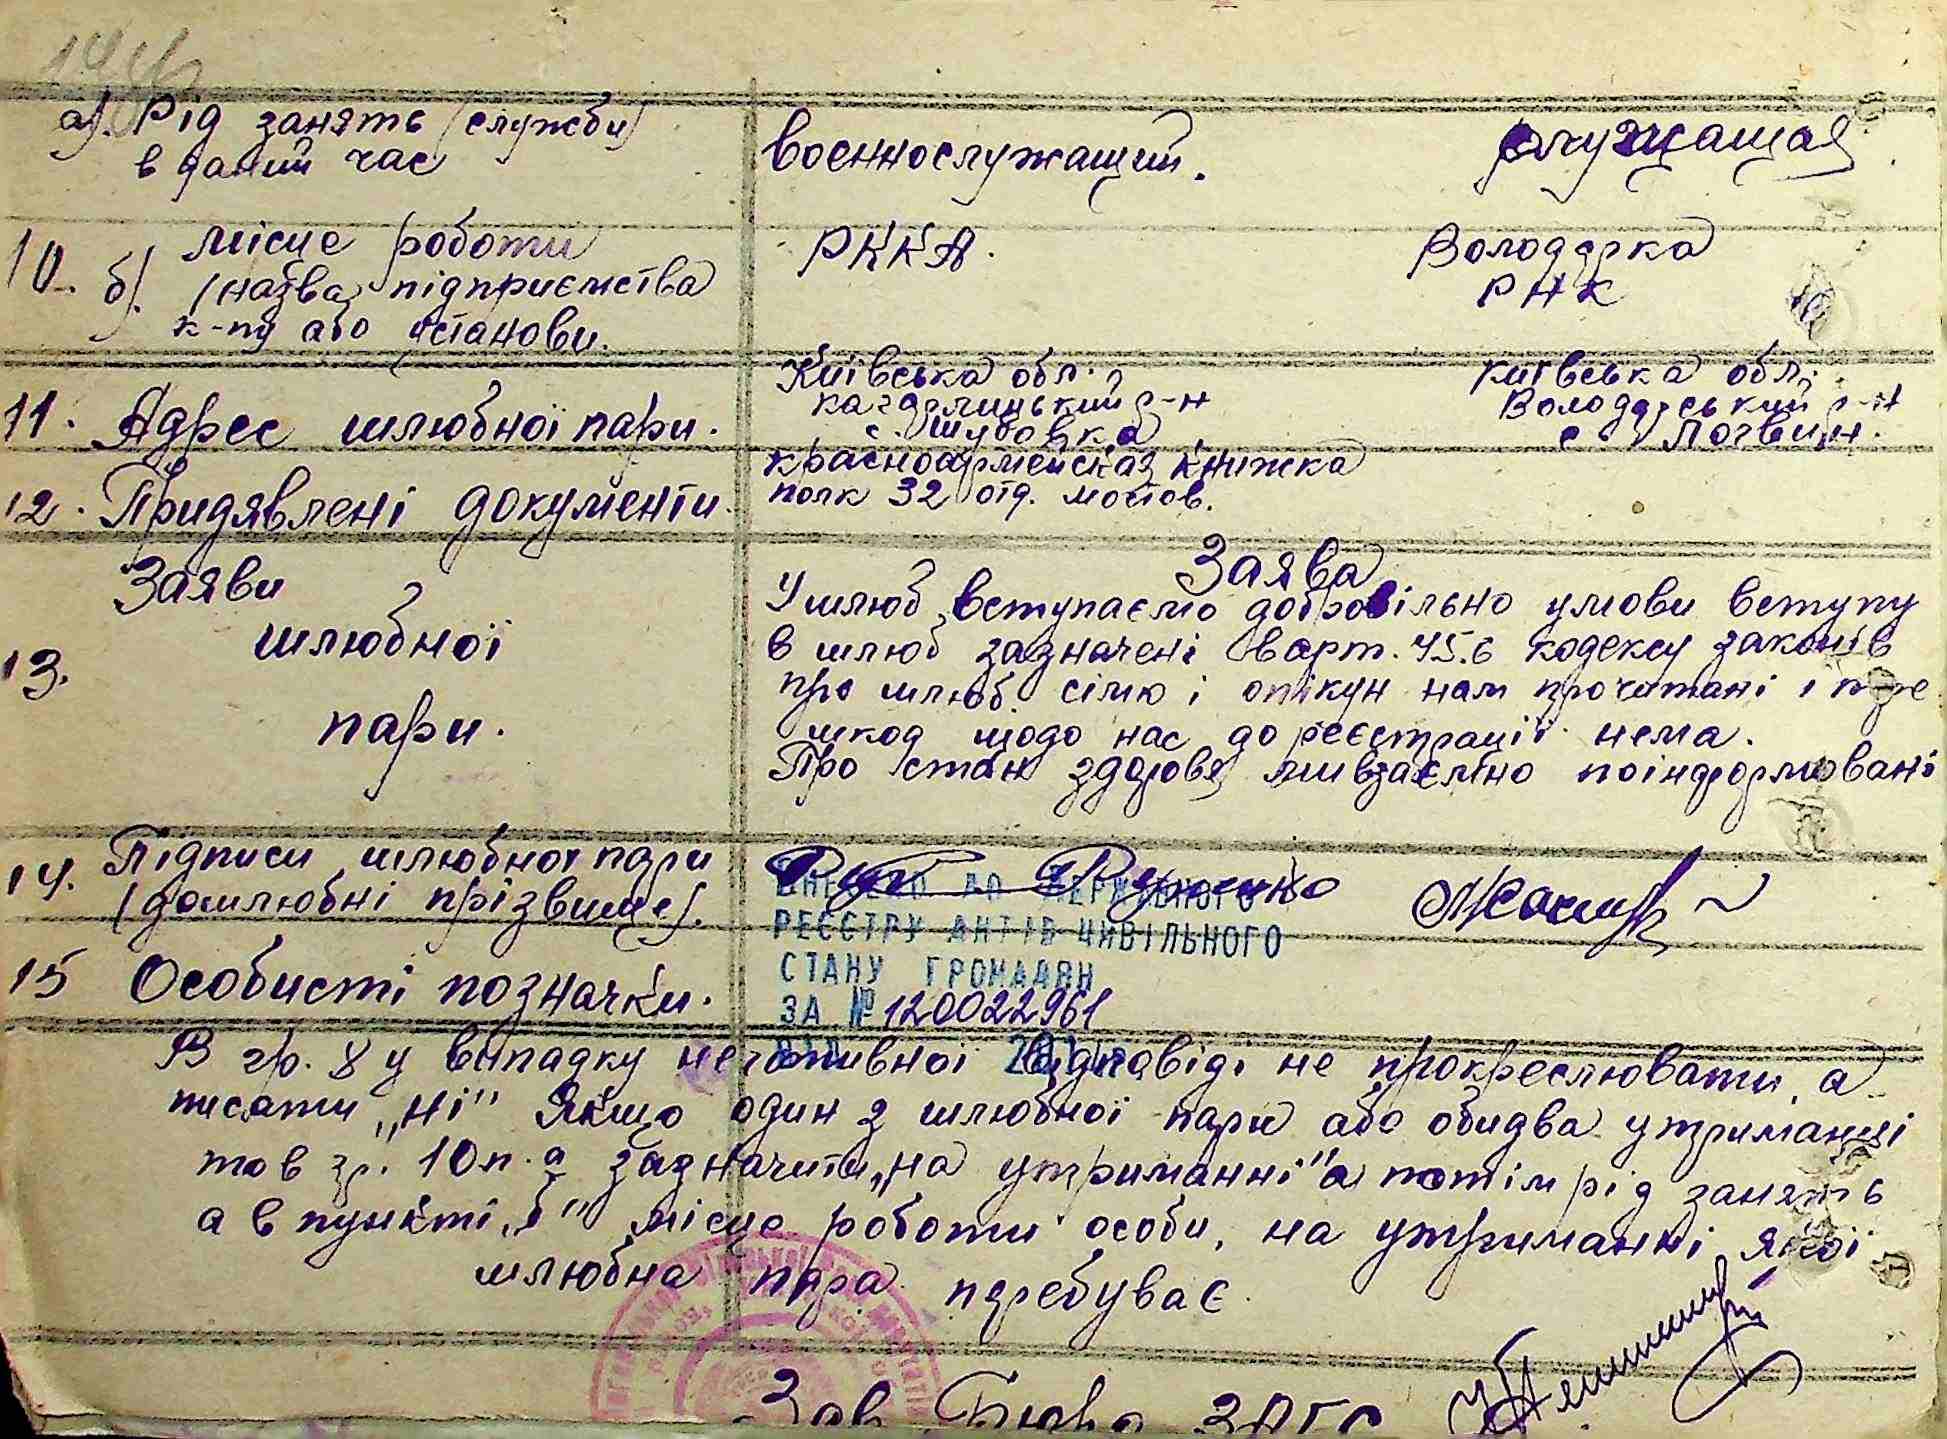 а). Рід занять (служби)
в даний час
военнослужащий.
служащая
10. б). місце роботи
(назва підприємства
к-пу або установи.
РККА.
Володарка
РНК
11. Адрес шлюбної пари.
Київська обл.
кагарлицький р-н
с. Шубовка
Київська обл.
Володарський р-н
с. Логвин.
12. Придявлені документи.
красноармейская книжка
полк 32 отд. мостов.
13. Заяви
шлюбної
пари.
Заява
У шлюб вступаємо добровільно умови вступу
в шлюб зазначені в арт. 45.6 кодексу законів
про шлюб сімю і опікун нам прочитані і пере
шкод щодо нас до реєстрації нема.
Про стан здоровя ми взаємно поінформовані
14. Підписи шлюбної пари
(дошлюбні прізвище).
ВНЕСЕНО ДО ДЕРЖАВНОГО
РЕЄСТРУ АКТІВ ЦИВІЛЬНОГО
СТАНУ ГРОМАДЯН
ЗА № 120022961
15 Особисті позначки.
В гр. 8 у випадку негативної відповіді не прокреслювати, а
писати „ні" Якщо один з шлюбної пари або обидва утриманці
то в гр. 10 п. а зазначити „на утриманні" а потім рід занять
а в пункті „б" місце роботи особи, на утриманні якої
шлюбна пара перебуває.
Зав. Бюро ЗАГС